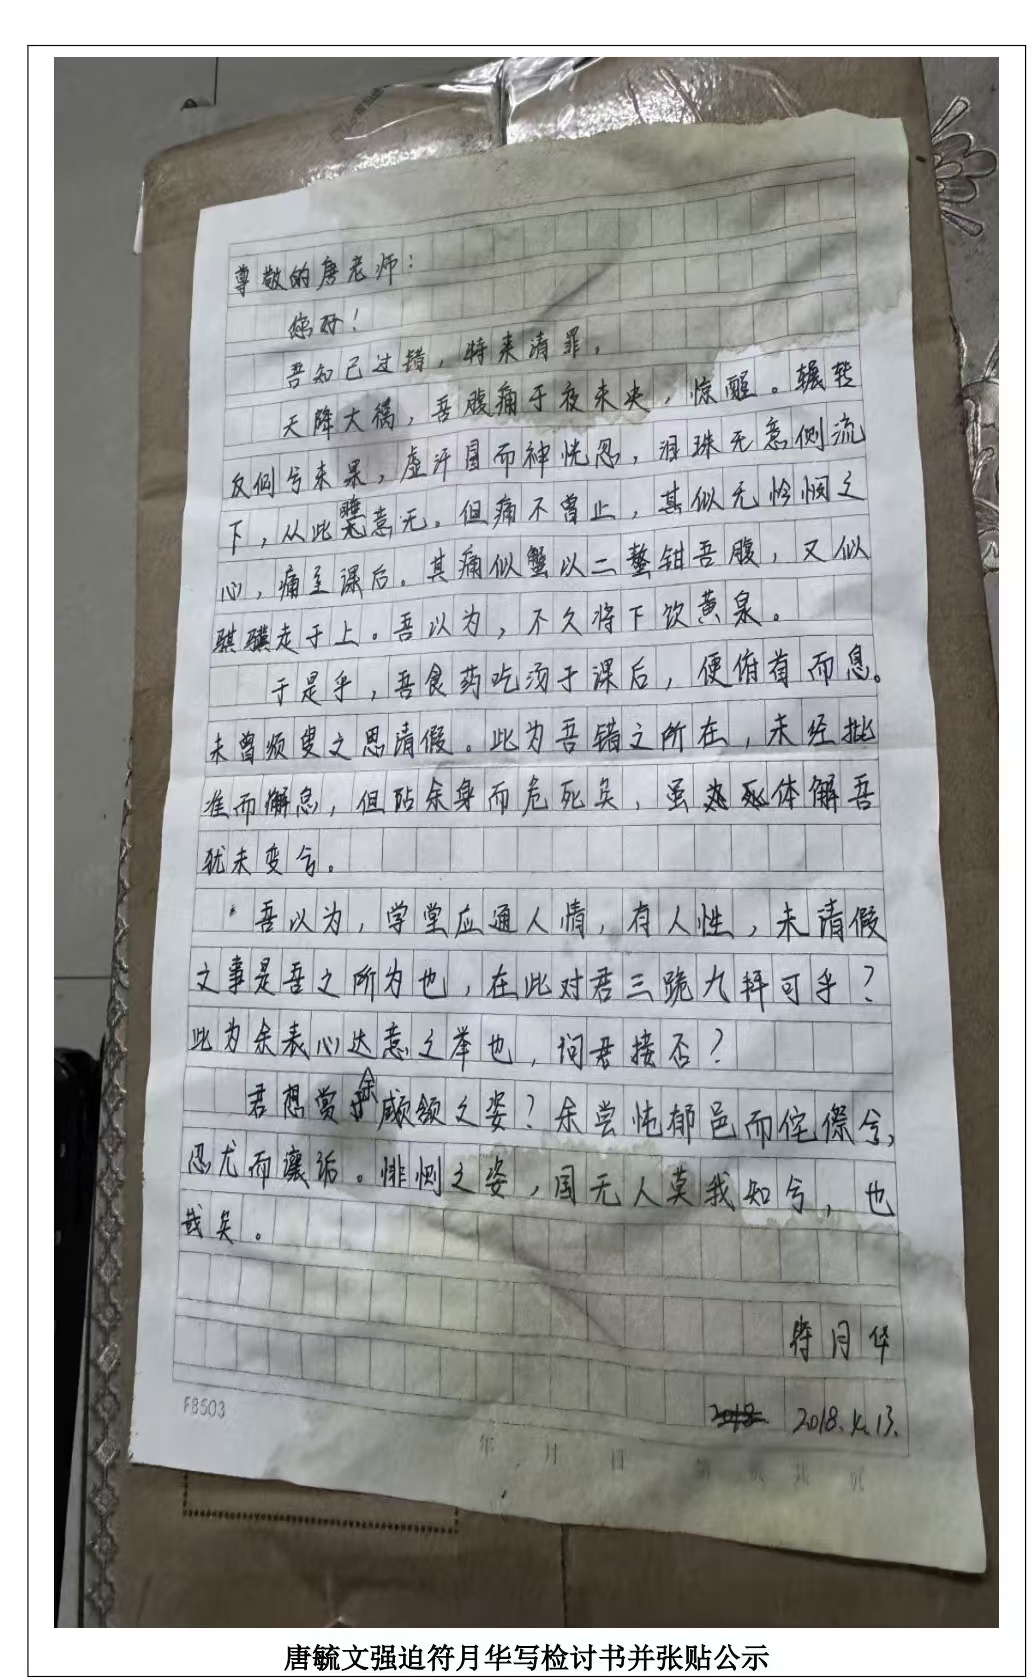 尊敬的唐老师：
您好！
吾知己过错，特来请罪，
天降大祸，吾腹痛于夜未央，惊醒。辗转
反侧兮未果，虚汗冒而神恍忽，泪珠无意侧流
下，从此睡意无。但痛不曾止，其似无怜悯之
心，痛至课后。其痛似蟹以二螯钳吾腹，又似
骐骥走于上。吾以为，不久将下饮黄泉。
于是乎，吾食药吃汤于课后，便俯首而息。
未曾须叟之思请假。此为吾错之所在，未经批
准而懈息，但阽余身而危死矣，虽体解吾
犹未变兮。
吾以为，学堂应通人情，有人性，未请假
之事是吾之所为也，在此对君三跪九拜可乎？
此为余表心达意之举也，问君接否？
君想赏余顑颔之姿？余尝忳郁邑而侘傺兮，
忍尤而攘诟。悱恻之姿，国无人莫我知兮，也
哉矣。
符月华
2018 2018.4.13.
FB503
年 月 日 第 页 共 页
唐毓文强迫符月华写检讨书并张贴公示